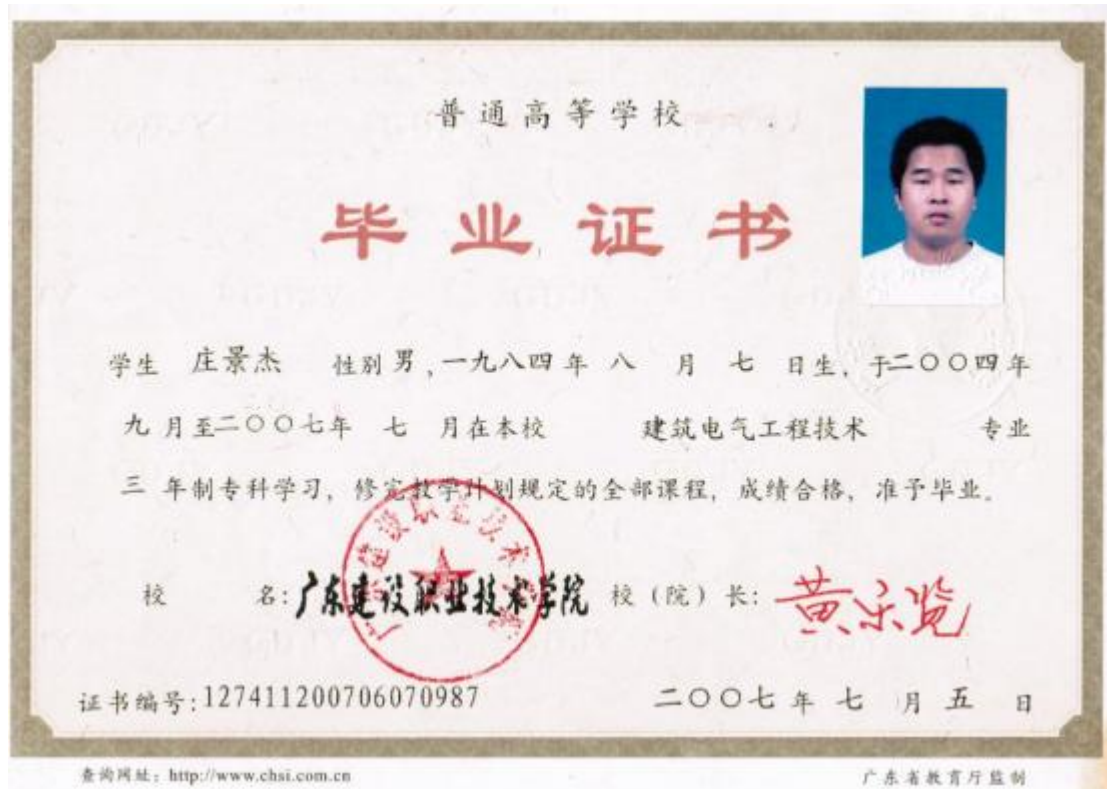 普通高等学校
毕业证书
学生 庄景杰 性别 男 , 一九八四 年 八 月 七 日生, 于二〇〇四年
九 月至二〇〇七年 七 月在本校 建筑电气工程技术 专业
三 年制专科学习, 修完教学计划规定的全部课程, 成绩合格, 准予毕业。
校 名: 广东建设职业技术学院 校(院)长:
广东建设职业技术学院
证书编号: 127411200706070987 二〇〇七 年 七 月 五 日
查询网址: http://www.chsi.com.cn 广东省教育厅监制